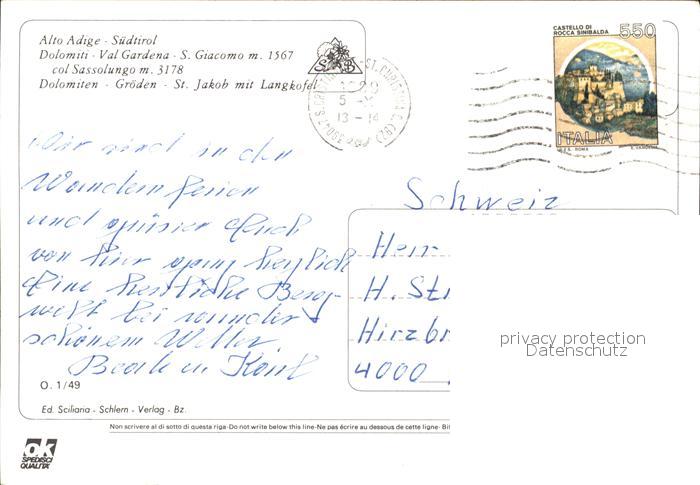 Alto Adige - Südtirol
Dolomiti - Val Gardena - S. Giacomo m. 1567
col Sassolungo m. 3178
Dolomiten - Gröden - St. Jakob mit Langkofel
5
13 - 14
CASTELLO DI
ROCCA SINIBALDA
550
ITALIA
Wir sind in den
Wanderferien
und grüssen Euch
von hier ganz herzlich
Eine herrliche Berg-
welt bei wunder
schönem Wetter
Schweiz
Herr
H. St
Hirzbr
4000
privacy protection
Datenschutz
O. 1/49
Ed. Sciliaria - Schlern - Verlag - Bz.
Non scrivere al di sotto di questa riga-Do not write below this line-Ne pas écrire au dessous de cette ligne- Bit
ok
SPEDISCI
QUALITÀ